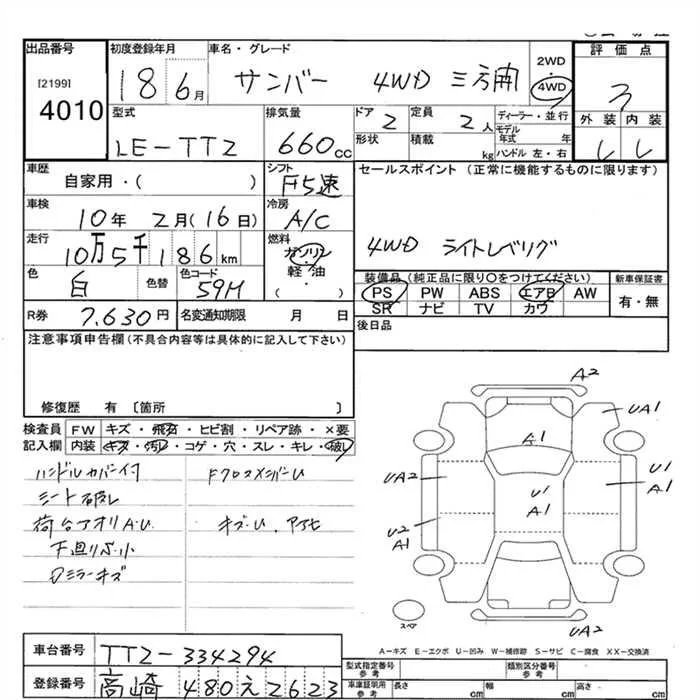 出品番号
[2199]
4010
初度登録年月
18 6月
車名・グレード
サンバー 4WD 三方開
2WD
・
4WD
評価点
3
外装 内装
型式
LE-TT2
排気量
660cc
ドア
2
定員
2人
形状
積載
kg
ディーラー・並行
モデル年式 年
ハンドル 左・右
車歴
自家用・( )
シフト
F5速
セールスポイント(正常に機能するものに限ります)
4WD ライトレベリグ
車検
10年 2月(16日)
冷房
A/C
走行
10万5千186km
燃料
ガソリン
軽・油
( ・ )
色
白
色替
色コード
59M
装備品(純正品に限り○をつけてください)
PS PW ABS エアB AW
SR ナビ TV カワ
新車保証書
有・無
R券
7,630円
名変通知期限 月 日
後日品
注意事項申告欄(不具合内容等は具体的に記入して下さい)
修復歴 有〔箇所 〕
検査員
記入欄
FW キズ・飛石・ヒビ割・リペア跡・×要
内装 キズ・汚レ・コゲ・穴・スレ・キレ・破レ
ハンドルカバー付
シート破レ
荷台アオリA・U
下廻りサビ小
Dミラーキズ
FクロスメンバーU
キズ・U
A2
UA1
A1
UA2
U1
A1
U1
A1
U2
A1
スペア
UA2
A-キズ E-エクボ U-凹み W-補修跡 S-サビ C-腐食 XX-交換済
車台番号
TT2-334294
登録番号
高崎 480え2623
型式指定番号
参考
類別区分番号
参考
車庫証明用
参考
長さ cm
幅 cm
高さ cm